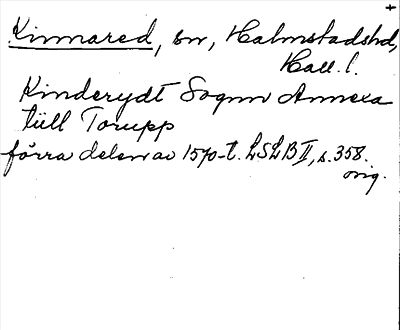 Kinnared, sn, Halmstadshd,
Hall. l.
Kinderydt Sognn Annexa
till Torupp
förra delen av 1570-t. LSLB II, s. 358.
orig.